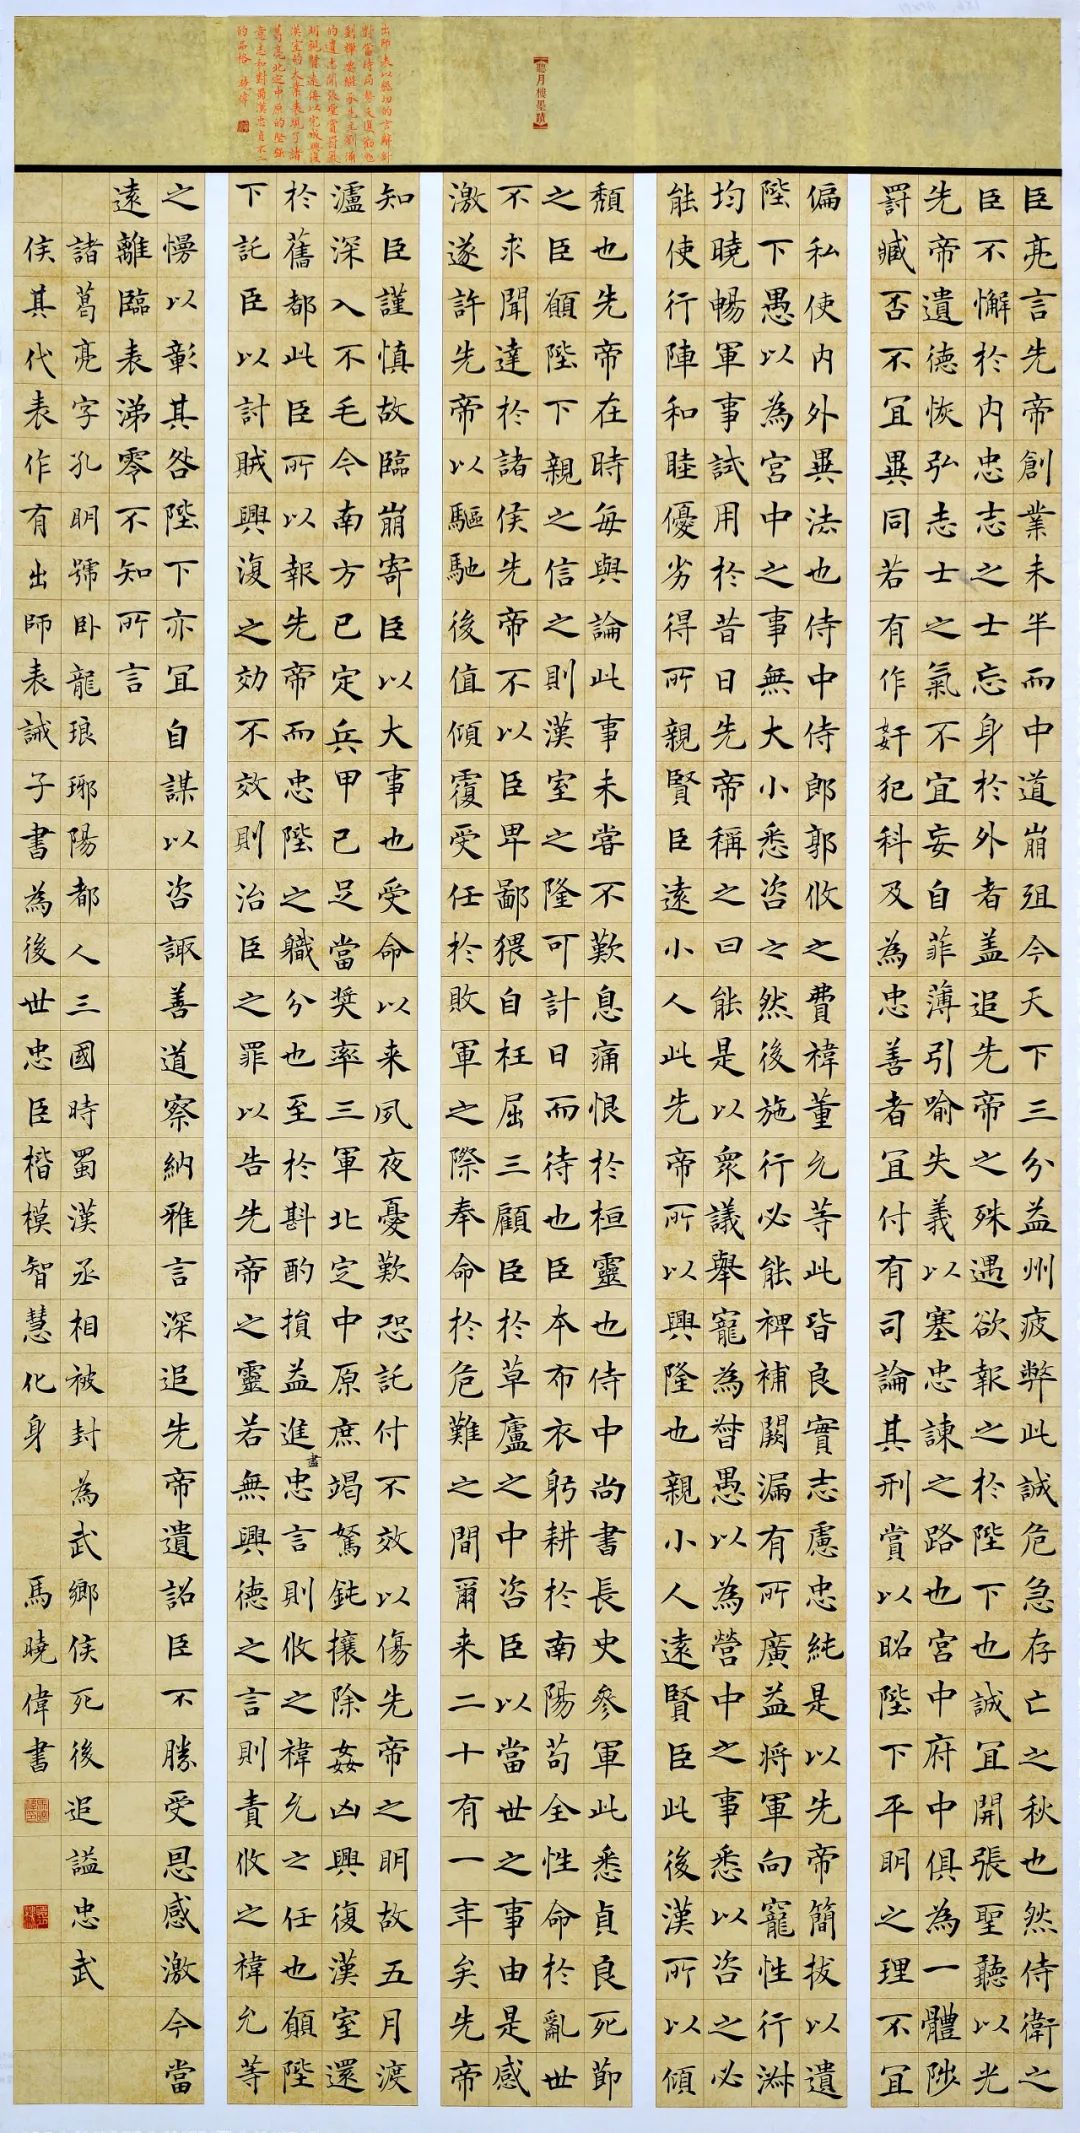 【聽月樓墨蹟】
出師表以懇切的言辭針
對當時局勢反復勸勉
劉禪要繼承先主劉備
的遺志開張聖聽賞罰嚴
明親賢遠佞以完成興復
漢室的大業表現了諸
葛亮北定中原的堅強
意志和對蜀漢忠貞不二
的品格 曉偉
臣亮言先帝創業未半而中道崩殂今天下三分益州疲弊此誠危急存亡之秋也然侍衛之
臣不懈於内忠志之士忘身於外者盖追先帝之殊遇欲報之於陛下也誠宜開張聖聽以光
先帝遺德恢弘志士之氣不宜妄自菲薄引喻失義以塞忠諫之路也宮中府中俱為一體陟
罰臧否不宜異同若有作奸犯科及為忠善者宜付有司論其刑賞以昭陛下平明之理不宜
偏私使内外異法也侍中侍郎郭攸之費禕董允等此皆良實志慮忠純是以先帝簡拔以遺
陛下愚以為宮中之事無大小悉咨之然後施行必能裨補闕漏有所廣益将軍向寵性行淑
均曉暢軍事試用於昔日先帝稱之曰能是以衆議舉寵為督愚以為營中之事悉以咨之必
能使行陣和睦優劣得所親賢臣遠小人此先帝所以興隆也親小人遠賢臣此後漢所以傾
頹也先帝在時每與論此事未嘗不歎息痛恨於桓靈也侍中尚書長史參軍此悉貞良死節
之臣願陛下親之信之則漢室之隆可計日而待也臣本布衣躬耕於南陽苟全性命於亂世
不求聞達於諸侯先帝不以臣卑鄙猥自枉屈三顧臣於草廬之中咨臣以當世之事由是感
激遂許先帝以驅馳後值傾覆受任於敗軍之際奉命於危難之間爾来二十有一年矣先帝
知臣謹慎故臨崩寄臣以大事也受命以来夙夜憂歎恐託付不效以傷先帝之明故五月渡
瀘深入不毛今南方已定兵甲已足當獎率三軍北定中原庶竭駑鈍攘除姦凶興復漢室還
於舊都此臣所以報先帝而忠陛之職分也至於斟酌損益進盡忠言則攸之禕允之任也願陛
下託臣以討賊興復之効不效則治臣之罪以告先帝之靈若無興德之言則責攸之禕允等
之慢以彰其咎陛下亦宜自謀以咨諏善道察納雅言深追先帝遺詔臣不勝受恩感激今當
遠離臨表涕零不知所言
諸葛亮字孔明號卧龍琅琊陽都人三國時蜀漢丞相被封為武鄉侯死後追謚忠武
侯其代表作有出師表誡子書為後世忠臣楷模智慧化身 馬曉偉書